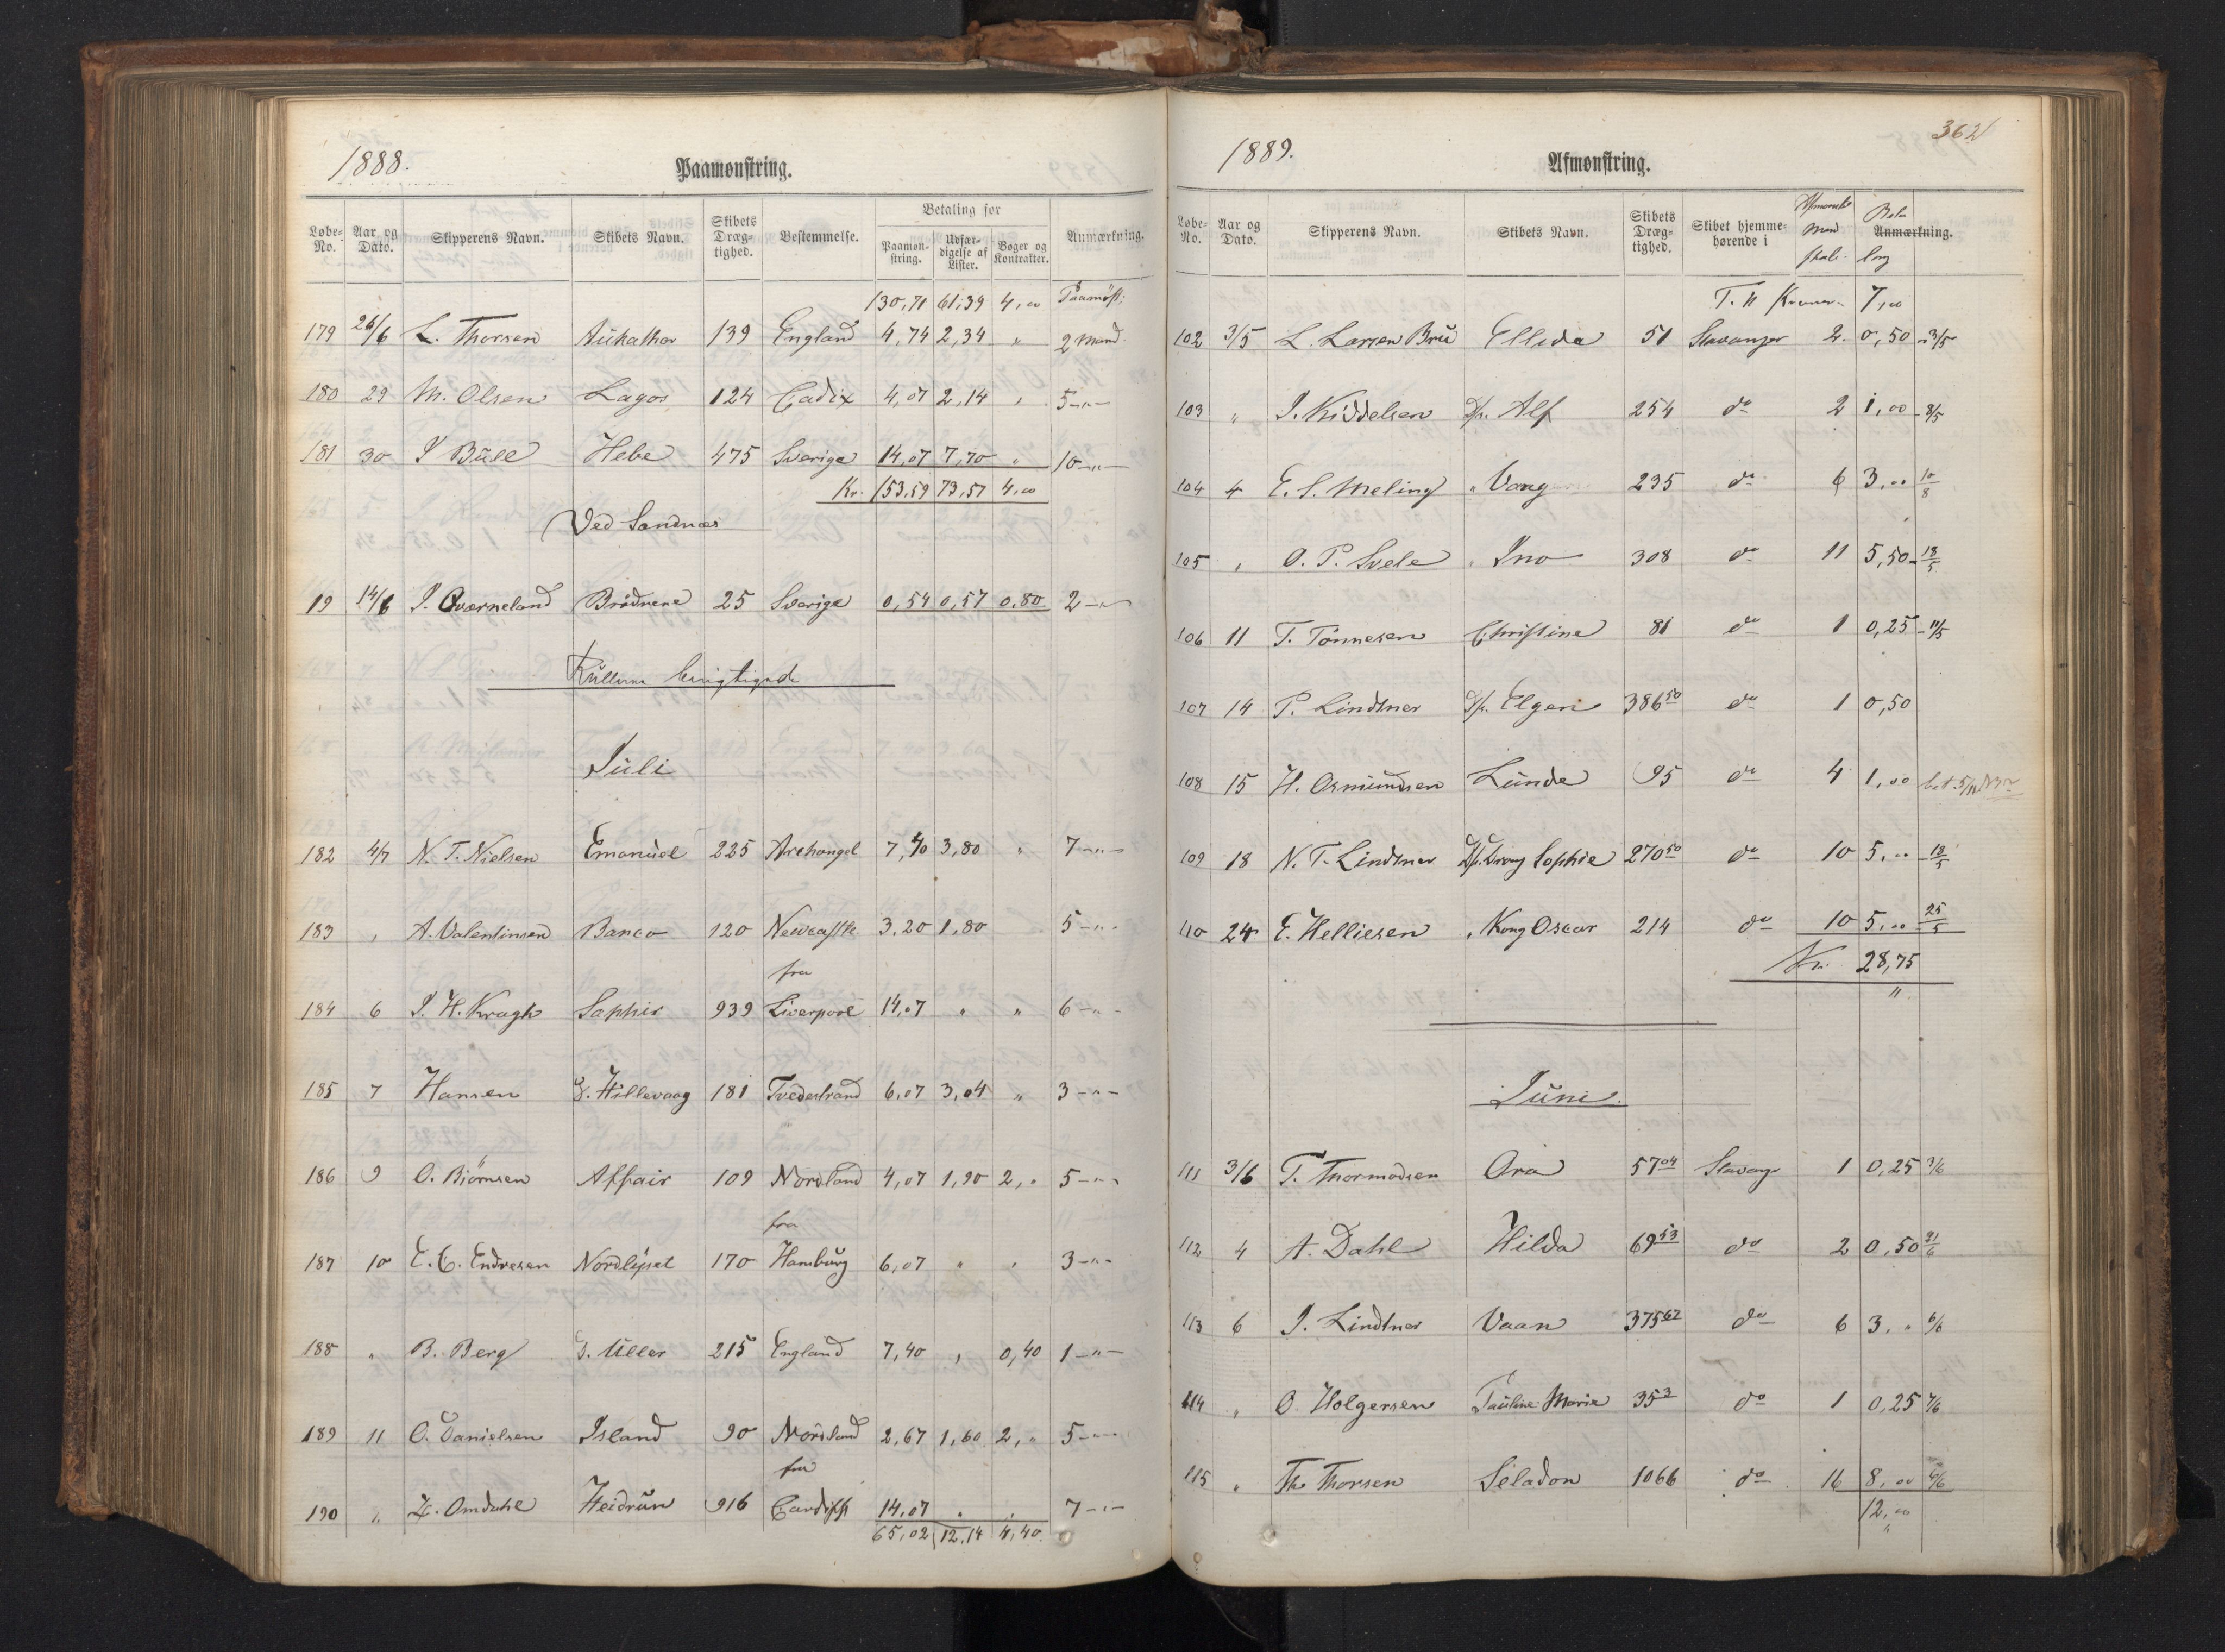 1888.
Paamønstring.
Løbe-No. Aar og Dato. Skipperens Navn. Skibets Navn. Skibets Dræg-tighed. Bestemmelse. Betaling for Paamøn-string. Udfær-digelse af Lister. Bøger og Kontrakter. Anmærkning.
130,71 61,39 4,00 Paamøst:
179 26/6 L. Thorsen Aukathor 139 England 4,74 2,34 " 2 Mand
180 29 M. Olsen Lagos 124 Cadix 4,07 2,14 " 5 - " -
181 30 I Bull Hebe 475 Sverige 14,07 7,70 " 10 - " -
Kr. 153,59 73,57 4,00
Ved Sandnæs
19 14/6 I. Qværneland Brødrene 25 Sverige 0,54 0,57 0,80 2 - " -
Rullerne
Juli
182 4/7 N. T. Nielsen Emanuel 225 Archangel 7,40 3,80 " 7 - " -
183 " A. Valentinsen Banco 120 Newcastle 3,20 1,80 5 - " -
fra
184 6 I. H. Kragh Saphir 939 Liverpool 14,07 " " 6 - " -
185 7 Hansen S. Hillevaag 181 Tvedestrand 6,07 3,04 " 3 - " -
186 9 O. Bjørnsen Affair 109 Nordland 4,07 1,90 2, " 5 - " -
fra
187 10 E. C. Endresen Nordlyset 170 Hamburg 6,07 " " 3 - " -
188 " B. Berg S. Uller 215 England 7,40 " 0,40 1 - " -
189 11 O. Danielsen Island 90 Nordland 2,67 1,60 2, " 5 - " -
fra
190 " Omdahl Heidrun 916 Cardiff 14,07 " " 7 - " -
65,02 12,14 4,40
362
1889.
Afmønstring.
Løbe-No. Aar og Dato. Skipperens Navn. Skibets Navn. Skibets Dræg-tighed. Skibet hjemme-hørende i Mand Anmærkning.
T. " Kroner 7,00
102 3/5 L. Larsen Bru Ellida 51 Stavanger 2 0,50 3/5
103 " I. Kiddelsen D/s. Alf 254 do 2 1,00 8/5
104 4 E. S. Meling " Vang 235 do 6 3, " 10/8
105 " O. P. Svele " Ino 308 do 11 5,50 18/5
106 11 T. Tønnesen Christine 81 do 1 0,25 11/5
107 14 P. Lindtner D/s. Elgen 386 50 do 1 0,50
108 15 H. Osmundsen Lunde 95 do 4 1,00
109 18 N. T. Lindtner D/s. Drong Sophie 270 50 do 10 5, " 18/5
110 24 E. Helliesen " Kong Oscar 214 do 10 5, " 25/5
Kr. 28,75
Juni
111 3/6 T. Thormodsen Ara 57 04 Stavanger 1 0,25 3/6
112 4 A. Dahl Hilda 69 53 do 2 0,50 21/6
113 6 I. Lindtner Vaan 375 62 do 6 3, " 6/6
114 " O. Holgersen Pauline Marie 35 3 do 1 0,25 7/6
115 " Th. Thorsen Seladon 1066 do 16 8,00 6/6
12,00